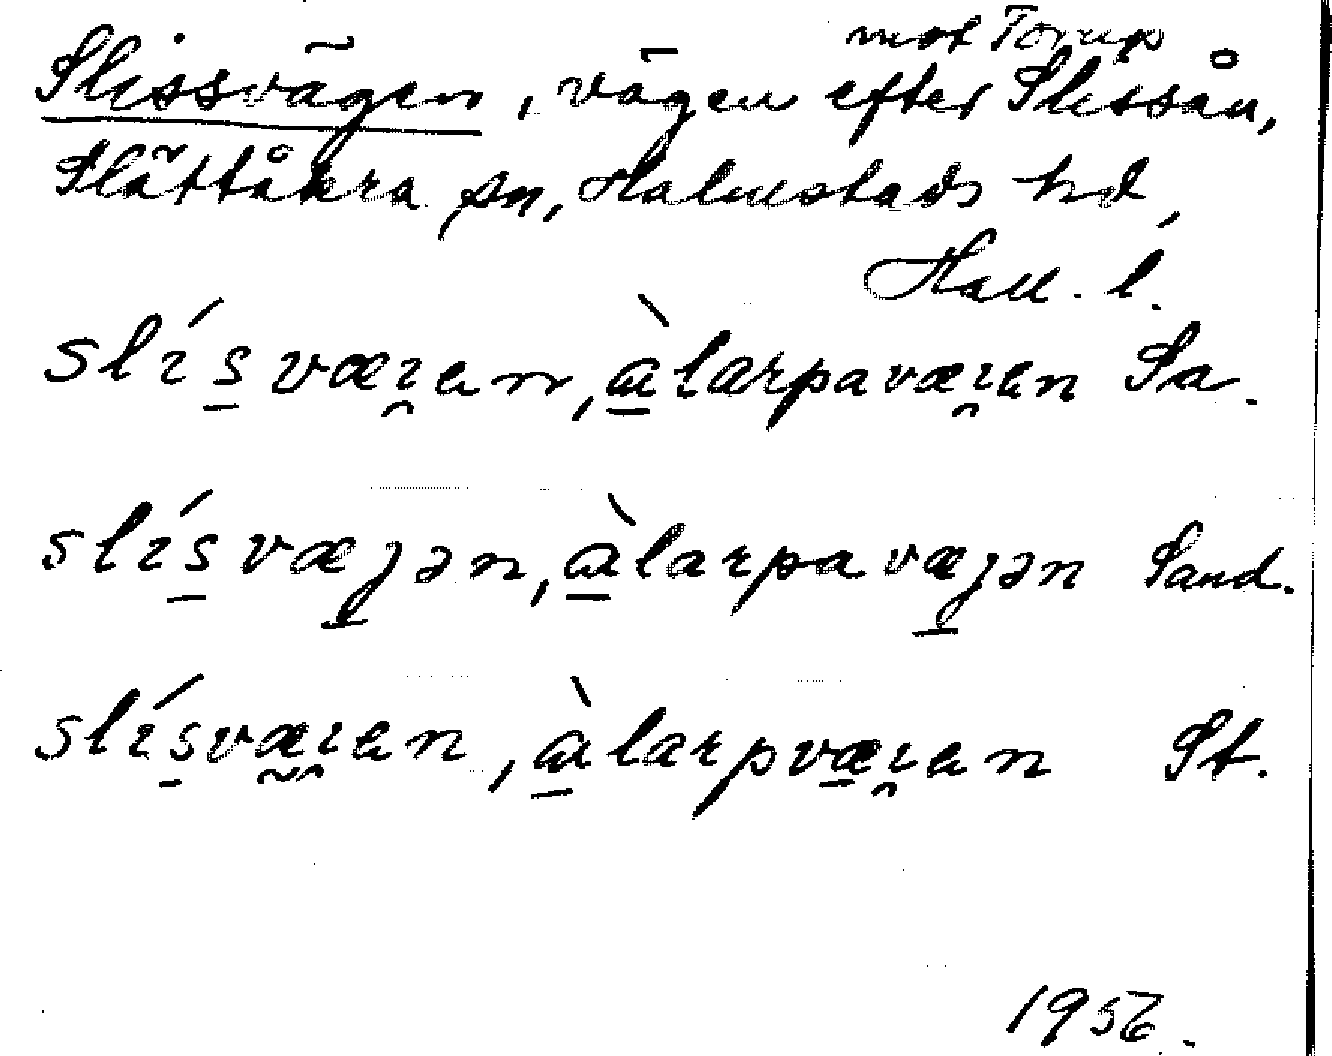 mot Torup
Slissvägen, vägen efter Slissån,
Slättåkra sn, Halmstads hd,
Hall. l.
slísværen, àlarpaværen Sa.
slísvæjən, àlarpavæjən Sand.
slísværen, àlarpværen St.
1956.